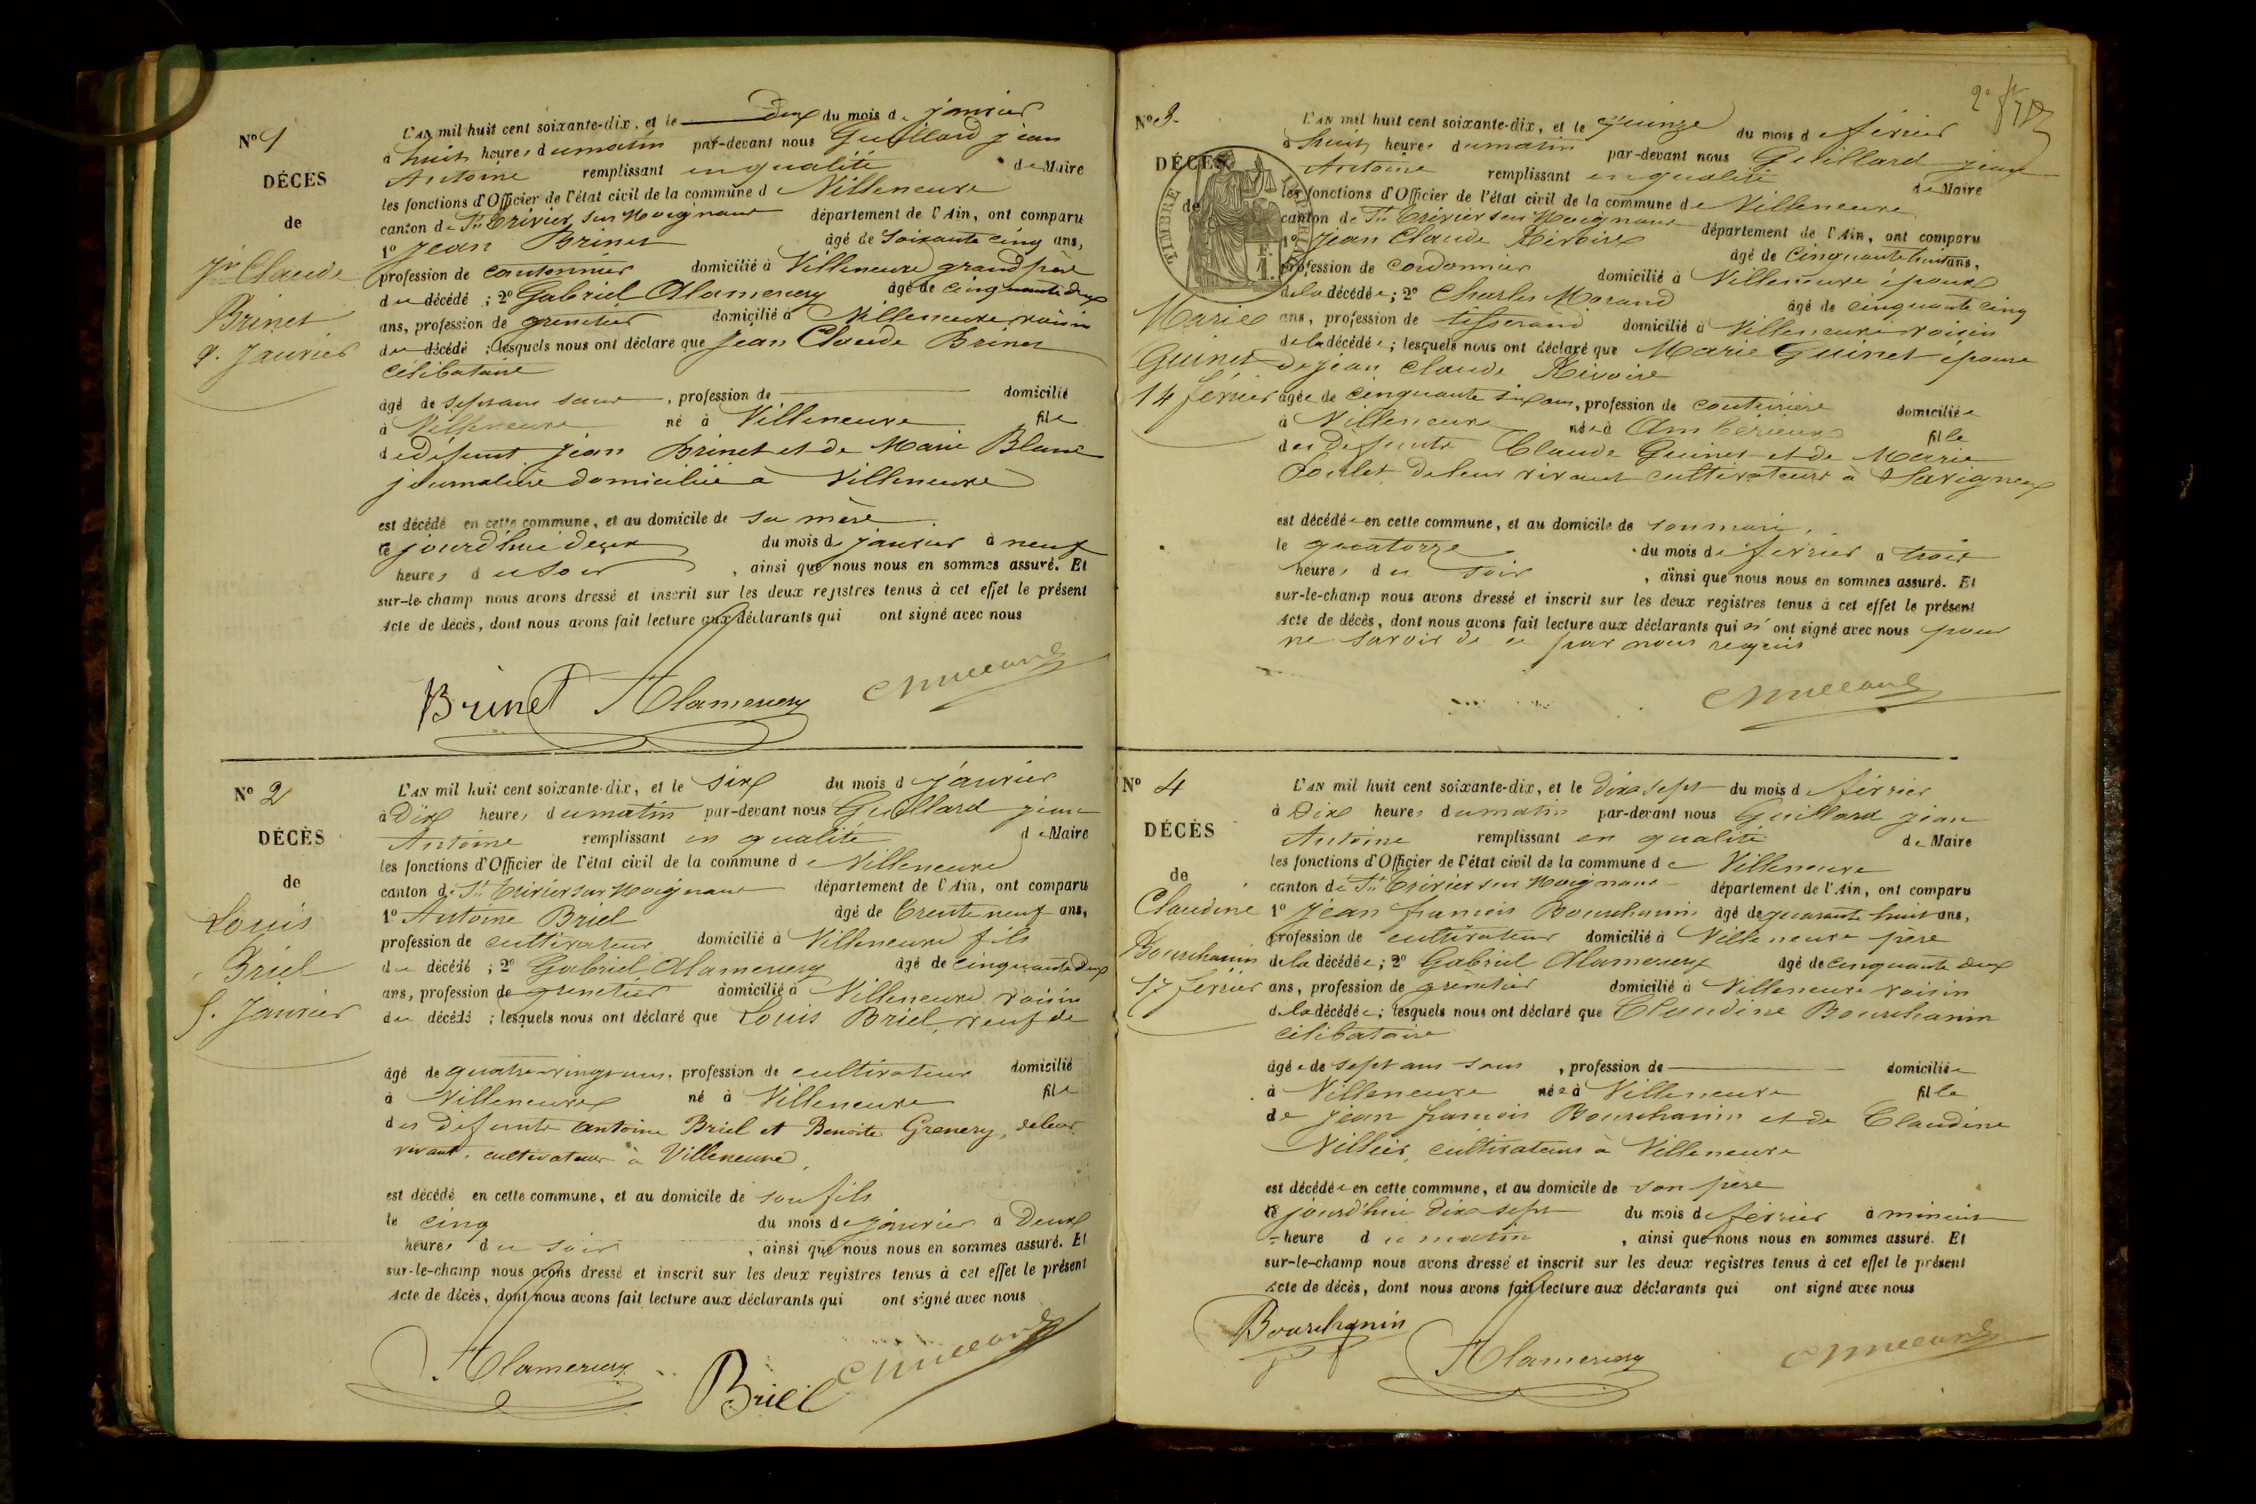 No 1
DÉCÈS
de
Jn Claude
Brinet
2. Janvier
L'AN mil huit cent soixante-dix, et le deux du mois de janvier
à huit heures du matin par-devant nous Guillard jean
Antoine remplissant en qualité de Maire
les fonctions d'Officier de l'état civil de la commune de Villeneuve
canton de St Trivier sur Moignans département de l'Ain, ont comparu
1º Jean Brinet âgé de Soixante cinq ans,
profession de cantonnier domicilié à Villeneuve grand père
du décédé ; 2º Gabriel Alamercery âgé de cinquante deux
ans, profession de grenetier domicilié à Villeneuve voisin
du décédé ; lesquels nous ont déclaré que Jean Claude Brinet
célibataire
âgé de sept ans , profession de domicilié
à Villeneuve né à Villeneuve fils
de défunt Jean Brinet et de Marie Blanc
journalière domiciliée à Villeneuve
est décédé en cette commune, et au domicile de sa mère
ce jourd'hui deux du mois de janvier à neuf
heures du soir , ainsi que nous nous en sommes assuré. Et
sur-le-champ nous avons dressé et inscrit sur les deux registres tenus à cet effet le présent
Acte de décès, dont nous avons fait lecture aux déclarants qui ont signé avec nous
Brinet Alamercery Guillard
No 2
DÉCÈS
de
Louis
Briel
5. Janvier
L'AN mil huit cent soixante-dix, et le six du mois de janvier
à Dix heures du matin par-devant nous Guillard jean
Antoine remplissant en qualité de Maire
les fonctions d'Officier de l'état civil de la commune de Villeneuve
canton de St Trivier sur Moignans département de l'Ain, ont comparu
1º Antoine Briel âgé de trente neuf ans,
profession de cultivateur domicilié à Villeneuve fils
du décédé ; 2º Gabriel Alamercery âgé de cinquante deux
ans, profession de grenetier domicilié à Villeneuve voisin
du décédé ; lesquels nous ont déclaré que Louis Briel, veuf de
âgé de quatre-vingt ans, profession de cultivateur domicilié
à Villeneuve né à Villeneuve fils
des Défunts Antoine Briel et Benoite Grenery, de leur
vivant, cultivateurs à Villeneuve
est décédé en cette commune, et au domicile de son fils
le cinq du mois de janvier à Deux
heures du soir , ainsi que nous nous en sommes assuré. Et
sur-le-champ nous avons dressé et inscrit sur les deux registres tenus à cet effet le présent
Acte de décès, dont nous avons fait lecture aux déclarants qui ont signé avec nous
Alamercery Briel Guillard
2e
No 3.
DÉCÈS
de
TIMBRE IMPÉRIAL
Marie
Guinet
14 février
L'AN mil huit cent soixante-dix, et le quinze du mois de février
à huit heures du matin par-devant nous Guillard jean
Antoine remplissant en qualité de Maire
les fonctions d'Officier de l'état civil de la commune de Villeneuve
canton de St Trivier sur Moignans département de l'Ain, ont comparu
1º Jean Claude Rivoire âgé de cinquante huit ans,
profession de cordonnier domicilié à Villeneuve époux
de la décédée ; 2º Charles Morand âgé de cinquante cinq
ans, profession de tisserand domicilié à Villeneuve voisin
de la décédée ; lesquels nous ont déclaré que Marie Guinet épouse
de jean claude Rivoire
âgée de cinquante six ans, profession de couturière domiciliée
à Villeneuve née à Ambérieux fille
des Défunts Claude Guinet et de Marie
Poulet, de leur vivant cultivateurs à Savigneux
est décédée en cette commune, et au domicile de son mari.
le quatorze du mois de février à trois
heures du soir , ainsi que nous nous en sommes assuré. Et
sur-le-champ nous avons dressé et inscrit sur les deux registres tenus à cet effet le présent
Acte de décès, dont nous avons fait lecture aux déclarants qui n'ont signé avec nous pour
ne savoir de ce par nous requis
Guillard
No 4
DÉCÈS
de
Claudine
Bourchanin
17 février
L'AN mil huit cent soixante-dix, et le dix sept du mois de février
à Dix heures du matin par-devant nous Guillard jean
Antoine remplissant en qualité de Maire
les fonctions d'Officier de l'état civil de la commune de Villeneuve
canton de St Trivier sur Moignans département de l'Ain, ont comparu
1º Jean françois Bourchanin âgé de quarante huit ans,
profession de cultivateur domicilié à Villeneuve père
de la décédée ; 2º Gabriel Alamercery âgé de cinquante deux
ans, profession de grenetier domicilié à Villeneuve voisin
de la décédée ; lesquels nous ont déclaré que Claudine Bourchanin
célibataire
âgée de sept ans , profession de domiciliée
à Villeneuve née à Villeneuve fille
de Jean françois Bourchanin et de Claudine
Villier, cultivateurs à Villeneuve
est décédée en cette commune, et au domicile de son père
ce jourd'hui dix sept du mois de février à minuit
heure du matin , ainsi que nous nous en sommes assuré. Et
sur-le-champ nous avons dressé et inscrit sur les deux registres tenus à cet effet le présent
Acte de décès, dont nous avons fait lecture aux déclarants qui ont signé avec nous
Bourchanin Alamercery Guillard